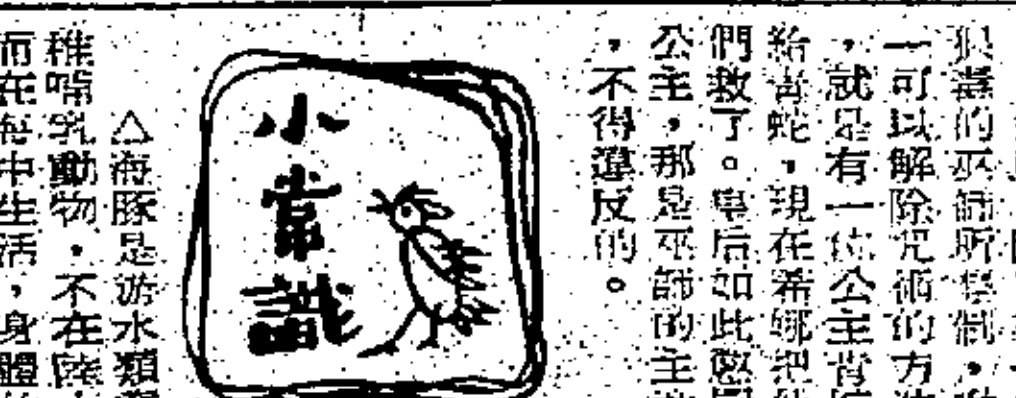 狠毒的巫師所控制，
一可以解除咒術的方法
，就是有一位公主肯
給青蛇，現在希娜把
們救了。事后如此
公主，那是巫師的主
，不得違反的。
小常識
△海豚是游水類
稚啼乳動物，不在陸
而在海中生活，身體